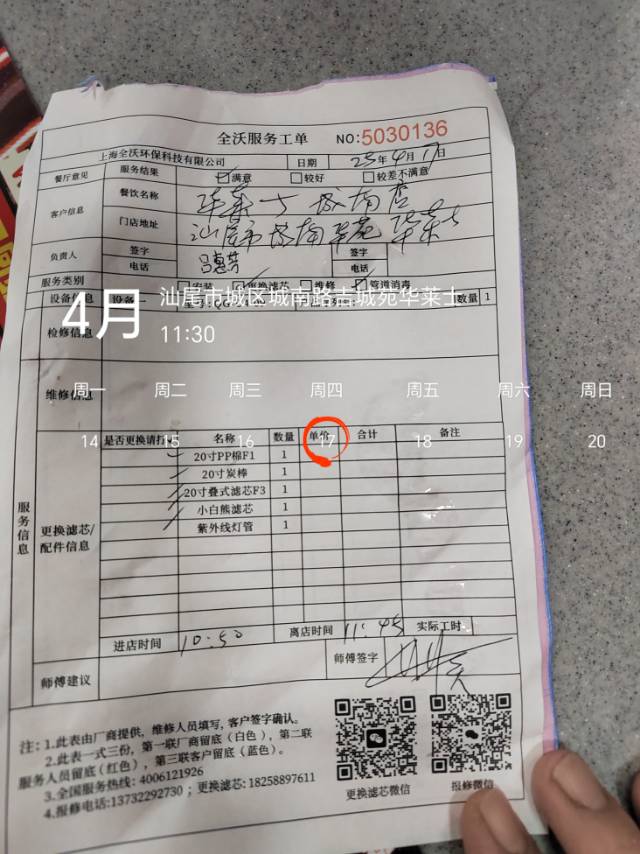 全沃服务工单 NO:5030136
上海全沃环保科技有限公司 日期 25年4月17日
餐厅意见 服务结果 满意 较好 较差不满意
客户信息 餐饮名称 华莱士 城南店
门店地址 汕尾市城南路 华莱士
负责人 签字 签字
电话 吕惠芳 电话
服务类别 安装 更换滤芯 维修 管道消毒
设备信息 设备一 数量 1
4月 汕尾市城区城南路吉城苑华莱士
11:30
检修信息
维修信息
周一 周二 周三 周四 周五 周六 周日
14 15 16 17 18 19 20
服务信息
更换滤芯/配件信息
是否更换请打 名称 数量 单价 合计 备注
✓ 20寸PP棉F1 1
✓ 20寸炭棒 1
✓ 20寸叠式滤芯F3 1
✓ 小白熊滤芯 1
✓ 紫外线灯管 1
进店时间 10:50 离店时间 11:45 实际工时
师傅建议 师傅签字
注：1.此表由厂商提供，维修人员填写，客户签字确认。
2.此表一式三份，第一联厂商留底（白色），第二联
服务人员留底（红色），第三联客户留底（蓝色）。
3.全国服务热线：4006121926
4.报修电话:13732292730；更换滤芯:18258897611
更换滤芯微信 报修微信